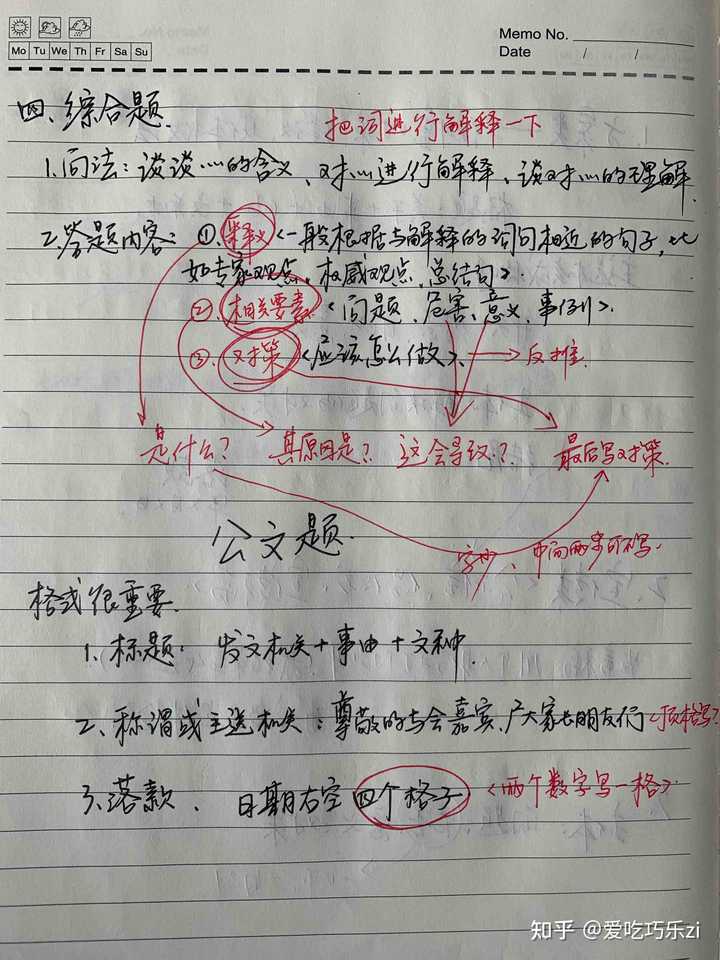 Memo No.
Mo Tu We Th Fr Sa Su
Date / /
四、综合题.
把词进行解释一下
1.问法:谈谈…的含义、对…进行解释、谈对…的理解.
2.答题内容: ①.释义<一般根据与解释的词句相近的句子,比
如专家观点、权威观点、总结句>.
②.相关要素<问题、危害、意义、事例>.
③.对策<应该怎么做>. →反推.
是什么? 其原因是? 这会导致..? 最后写对策.
公文题.
字少、中间两步可不写.
格式很重要.
1.标题: 发文机关+事由+文种.
2.称谓或主送机关:尊敬的与会嘉宾、广大家长朋友们<顶格写>
3.落款、 日期右空四个格子 <两个数字写一格>.
知乎 @爱吃巧乐zi